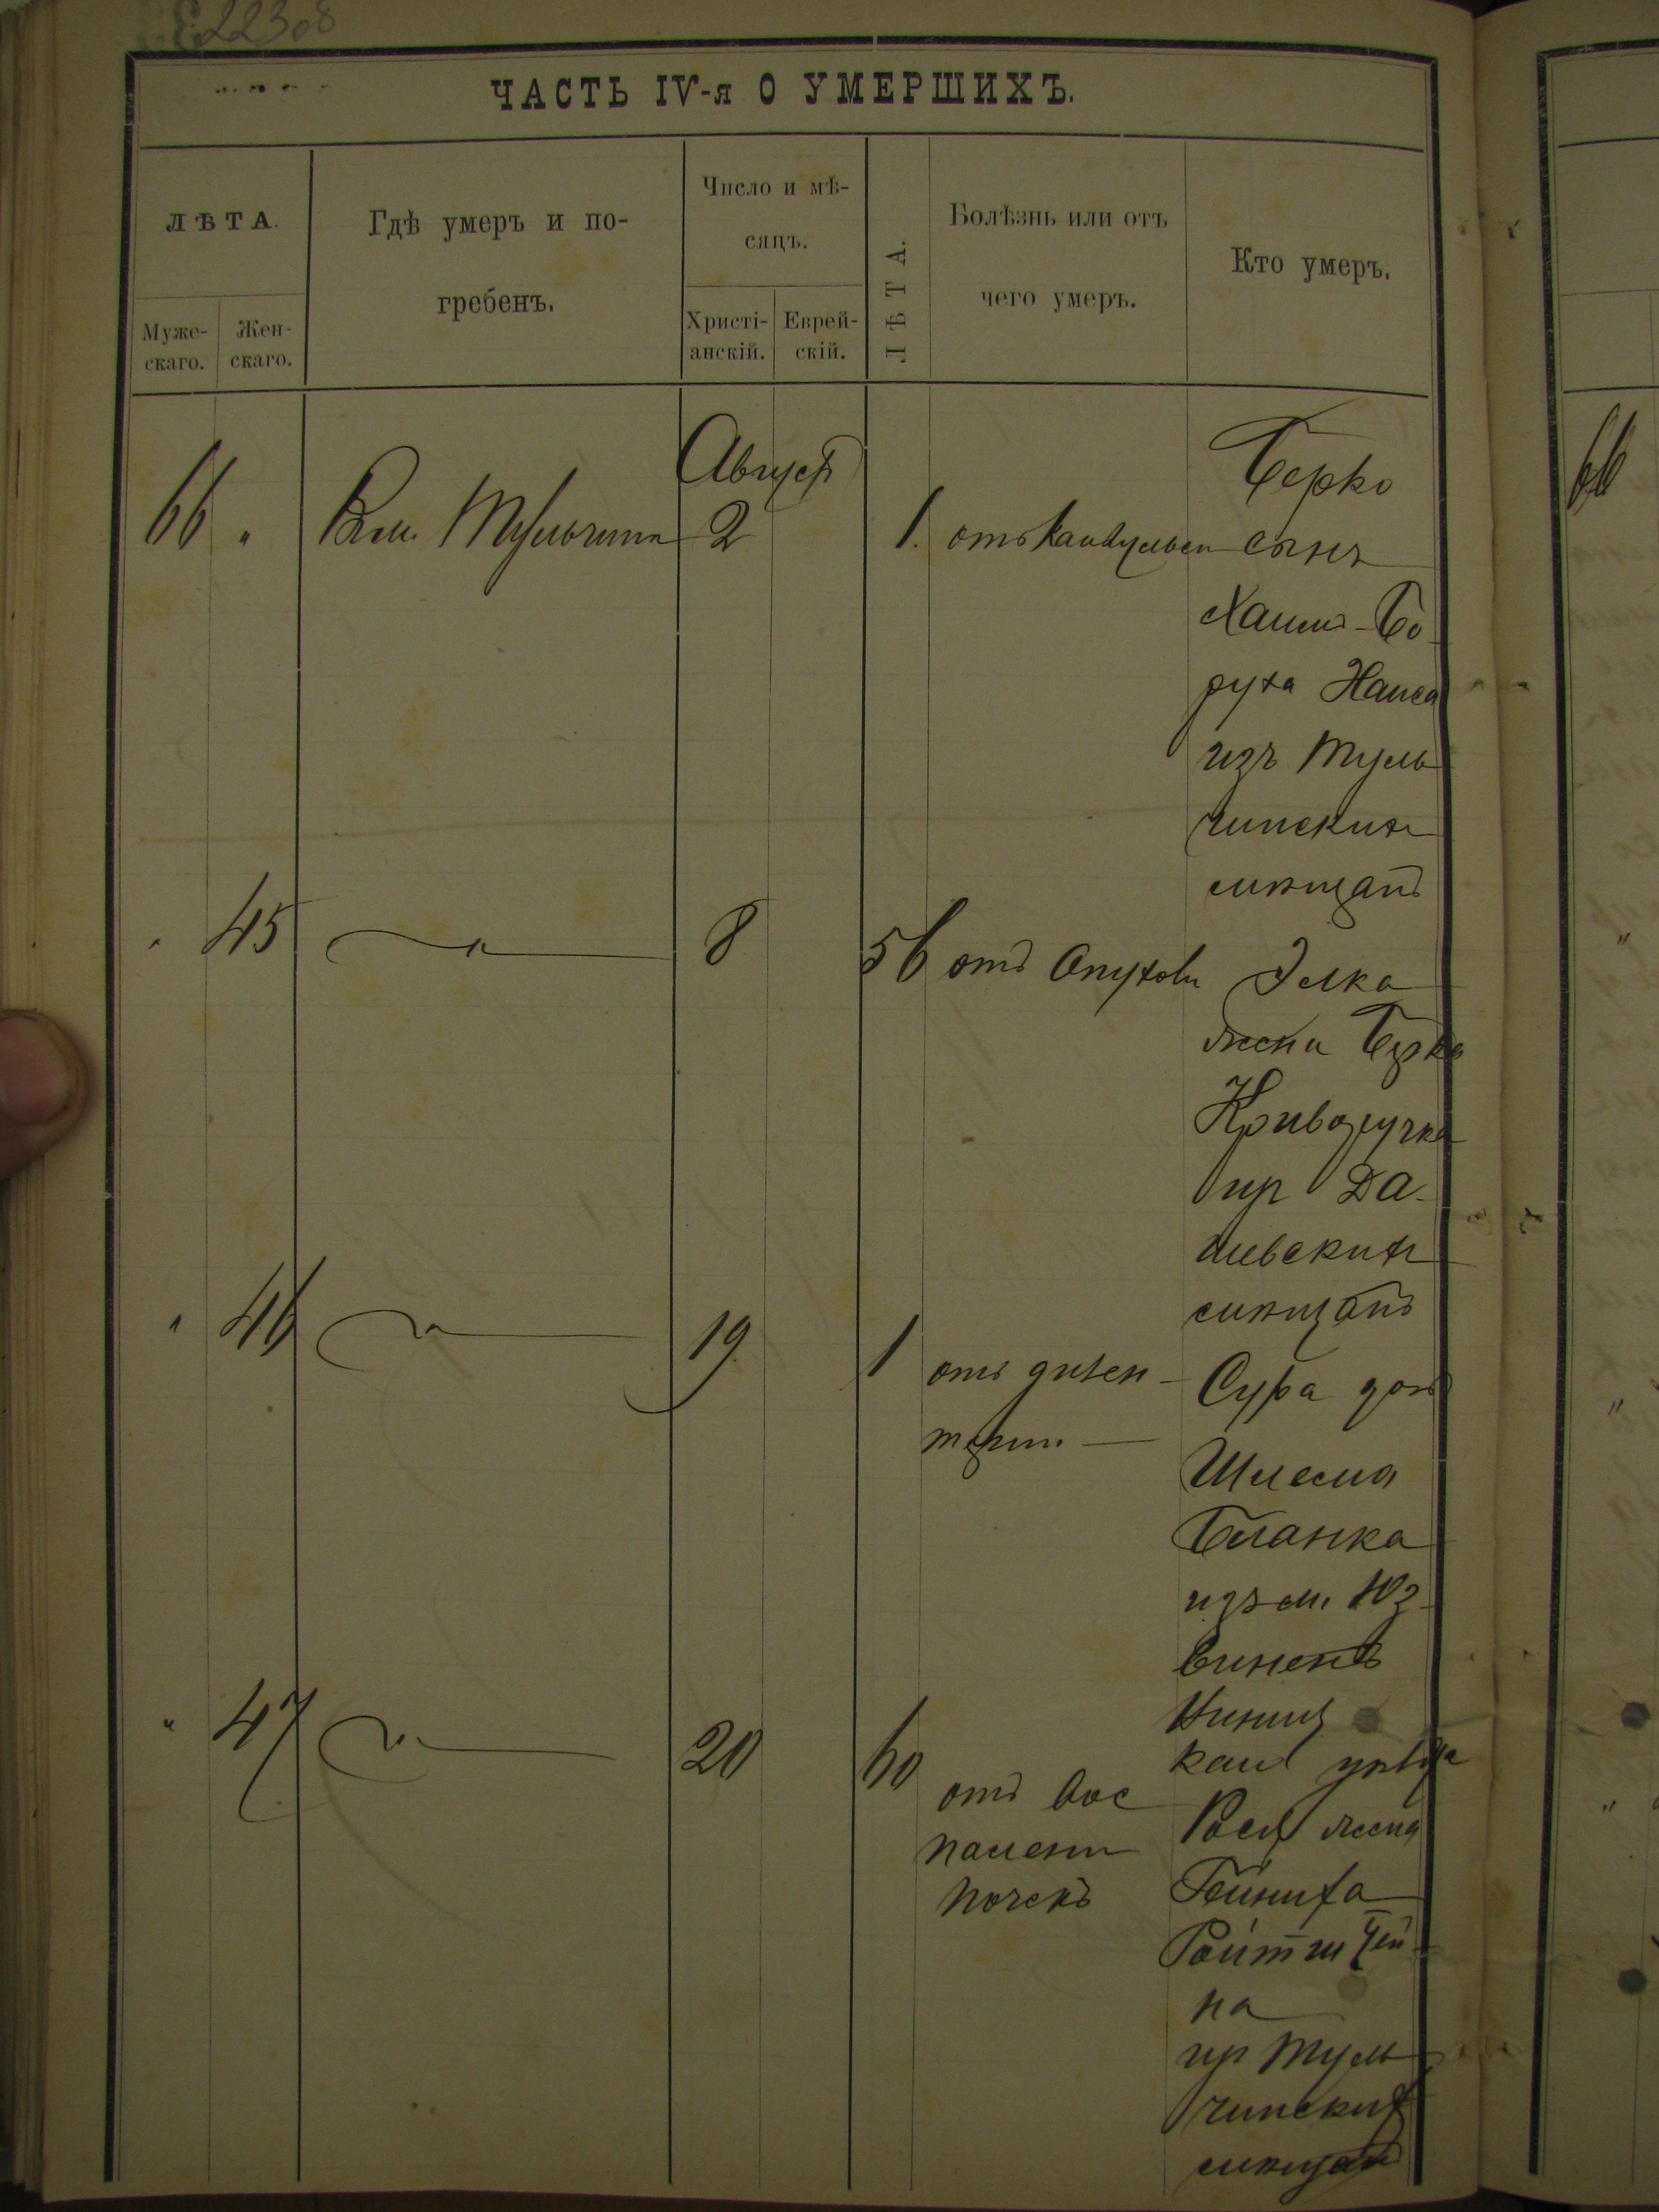 22308
ЧАСТЬ IV-я О УМЕРШИХЪ.
ЛѢТА.
Муже-
скаго.
Жен-
скаго.
Гдѣ умеръ и по-
гребенъ.
Число и мѣ-
сяцъ.
Христі-
анскій.
Еврей-
скій.
ЛѢТА.
Болѣзнь или отъ
чего умеръ.
Кто умеръ.
Август
66 " Тульчина 2 1. отъ Берко
сынъ
Хаимъ-Бо
руха
изъ Туль
чинскихъ
мѣщанъ
" 45 " 8 56 отъ опухоли Элка
жена Берка
Криворучка
изъ Да-
шевскихъ
мѣщанъ
" 46 " 19 1 отъ дизен-
теріи
Сура дочь
Шлема
Бланка
изъ м. Юз-
винецъ
Винниц
каго уѣзда
" 47 " 20 60 отъ вос
паленія
почекъ
Рося жена
Гейниха
Ройтштей
на
изъ Туль
чинскихъ
мѣщанъ
66